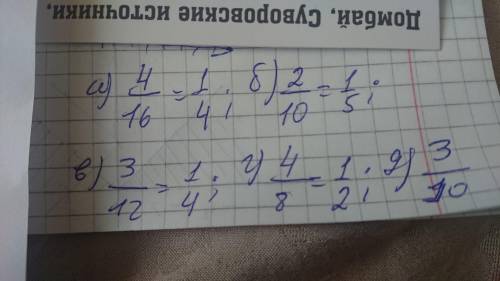 Домбай. Суворовские источники.
а) 4/16 = 1/4; б) 2/10 = 1/5;
в) 3/12 = 1/4; г) 4/8 = 1/2; д) 3/10